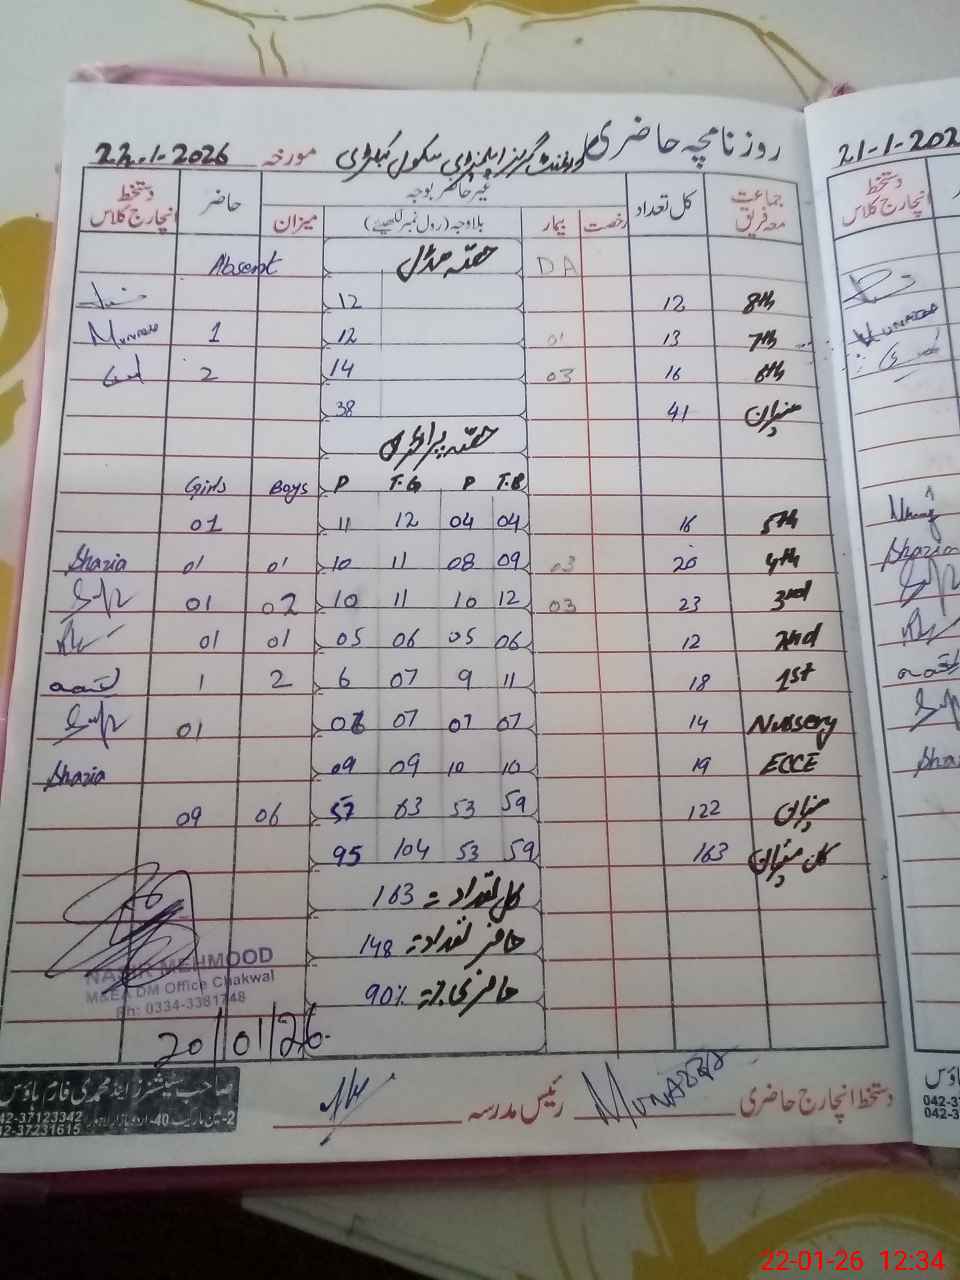 روزنامچہ حاضری گورنمنٹ گرلز ایلیمنٹری سکول مورخہ 22.1.2026
جماعت معہ فریق کل تعداد غیر حاضر بوجہ حاضر دستخط انچارج کلاس
رخصت بیمار بلاوجہ (رول نمبر لکھیئے) میزان
DA حصہ مڈل Absent
8th 12 12
7th 13 01 12 1 Munazza
6th 16 03 14 2
میزان 41 38
حصہ پرائمری
P T.G P T.B Boys Girls
5th 16 04 04 12 11 01
4th 20 03 09 08 11 10 01 01 Shazia
3rd 23 03 12 10 11 10 02 01
2nd 12 06 05 06 05 01 01
1st 18 11 9 07 6 2 1
Nursery 14 07 07 07 06 01
ECCE 19 10 10 09 09 Shazia
میزان 122 59 53 63 57 06 09
کل میزان 163 59 53 104 95
کل تعداد = 163
حاضر تعداد = 148
حاضری % = 90%
NASIR MEHMOOD
M&EA DM Office Chakwal
Ph: 0334-3381748
20/01/26
دستخط انچارج حاضری Munazza رئیس مدرسہ
صاحب سٹیشنرز اینڈ محمدی فارم ہاؤس
042-37123342
042-37231615
21-1-202
دستخط انچارج کلاس
Munazza
Shazia
Shazia
042-3
042-3
22-01-26 12:34